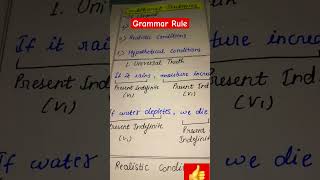 Conditional Sentences
Grammar Rule
2) Realistic Conditions
3) Hypothetical conditions
1. Universal Truth
If it rains, moisture increa
Present Indefinite
Present Ind
(V1)
(V1)
If water depletes, we die
Present Indefinite
Present
(V1)
Indefinite
Realistic Condi
1. Uni
If it rai
moisture increa
Present Indefinite
Present Inde
(V1)
(V1)
If water
we die